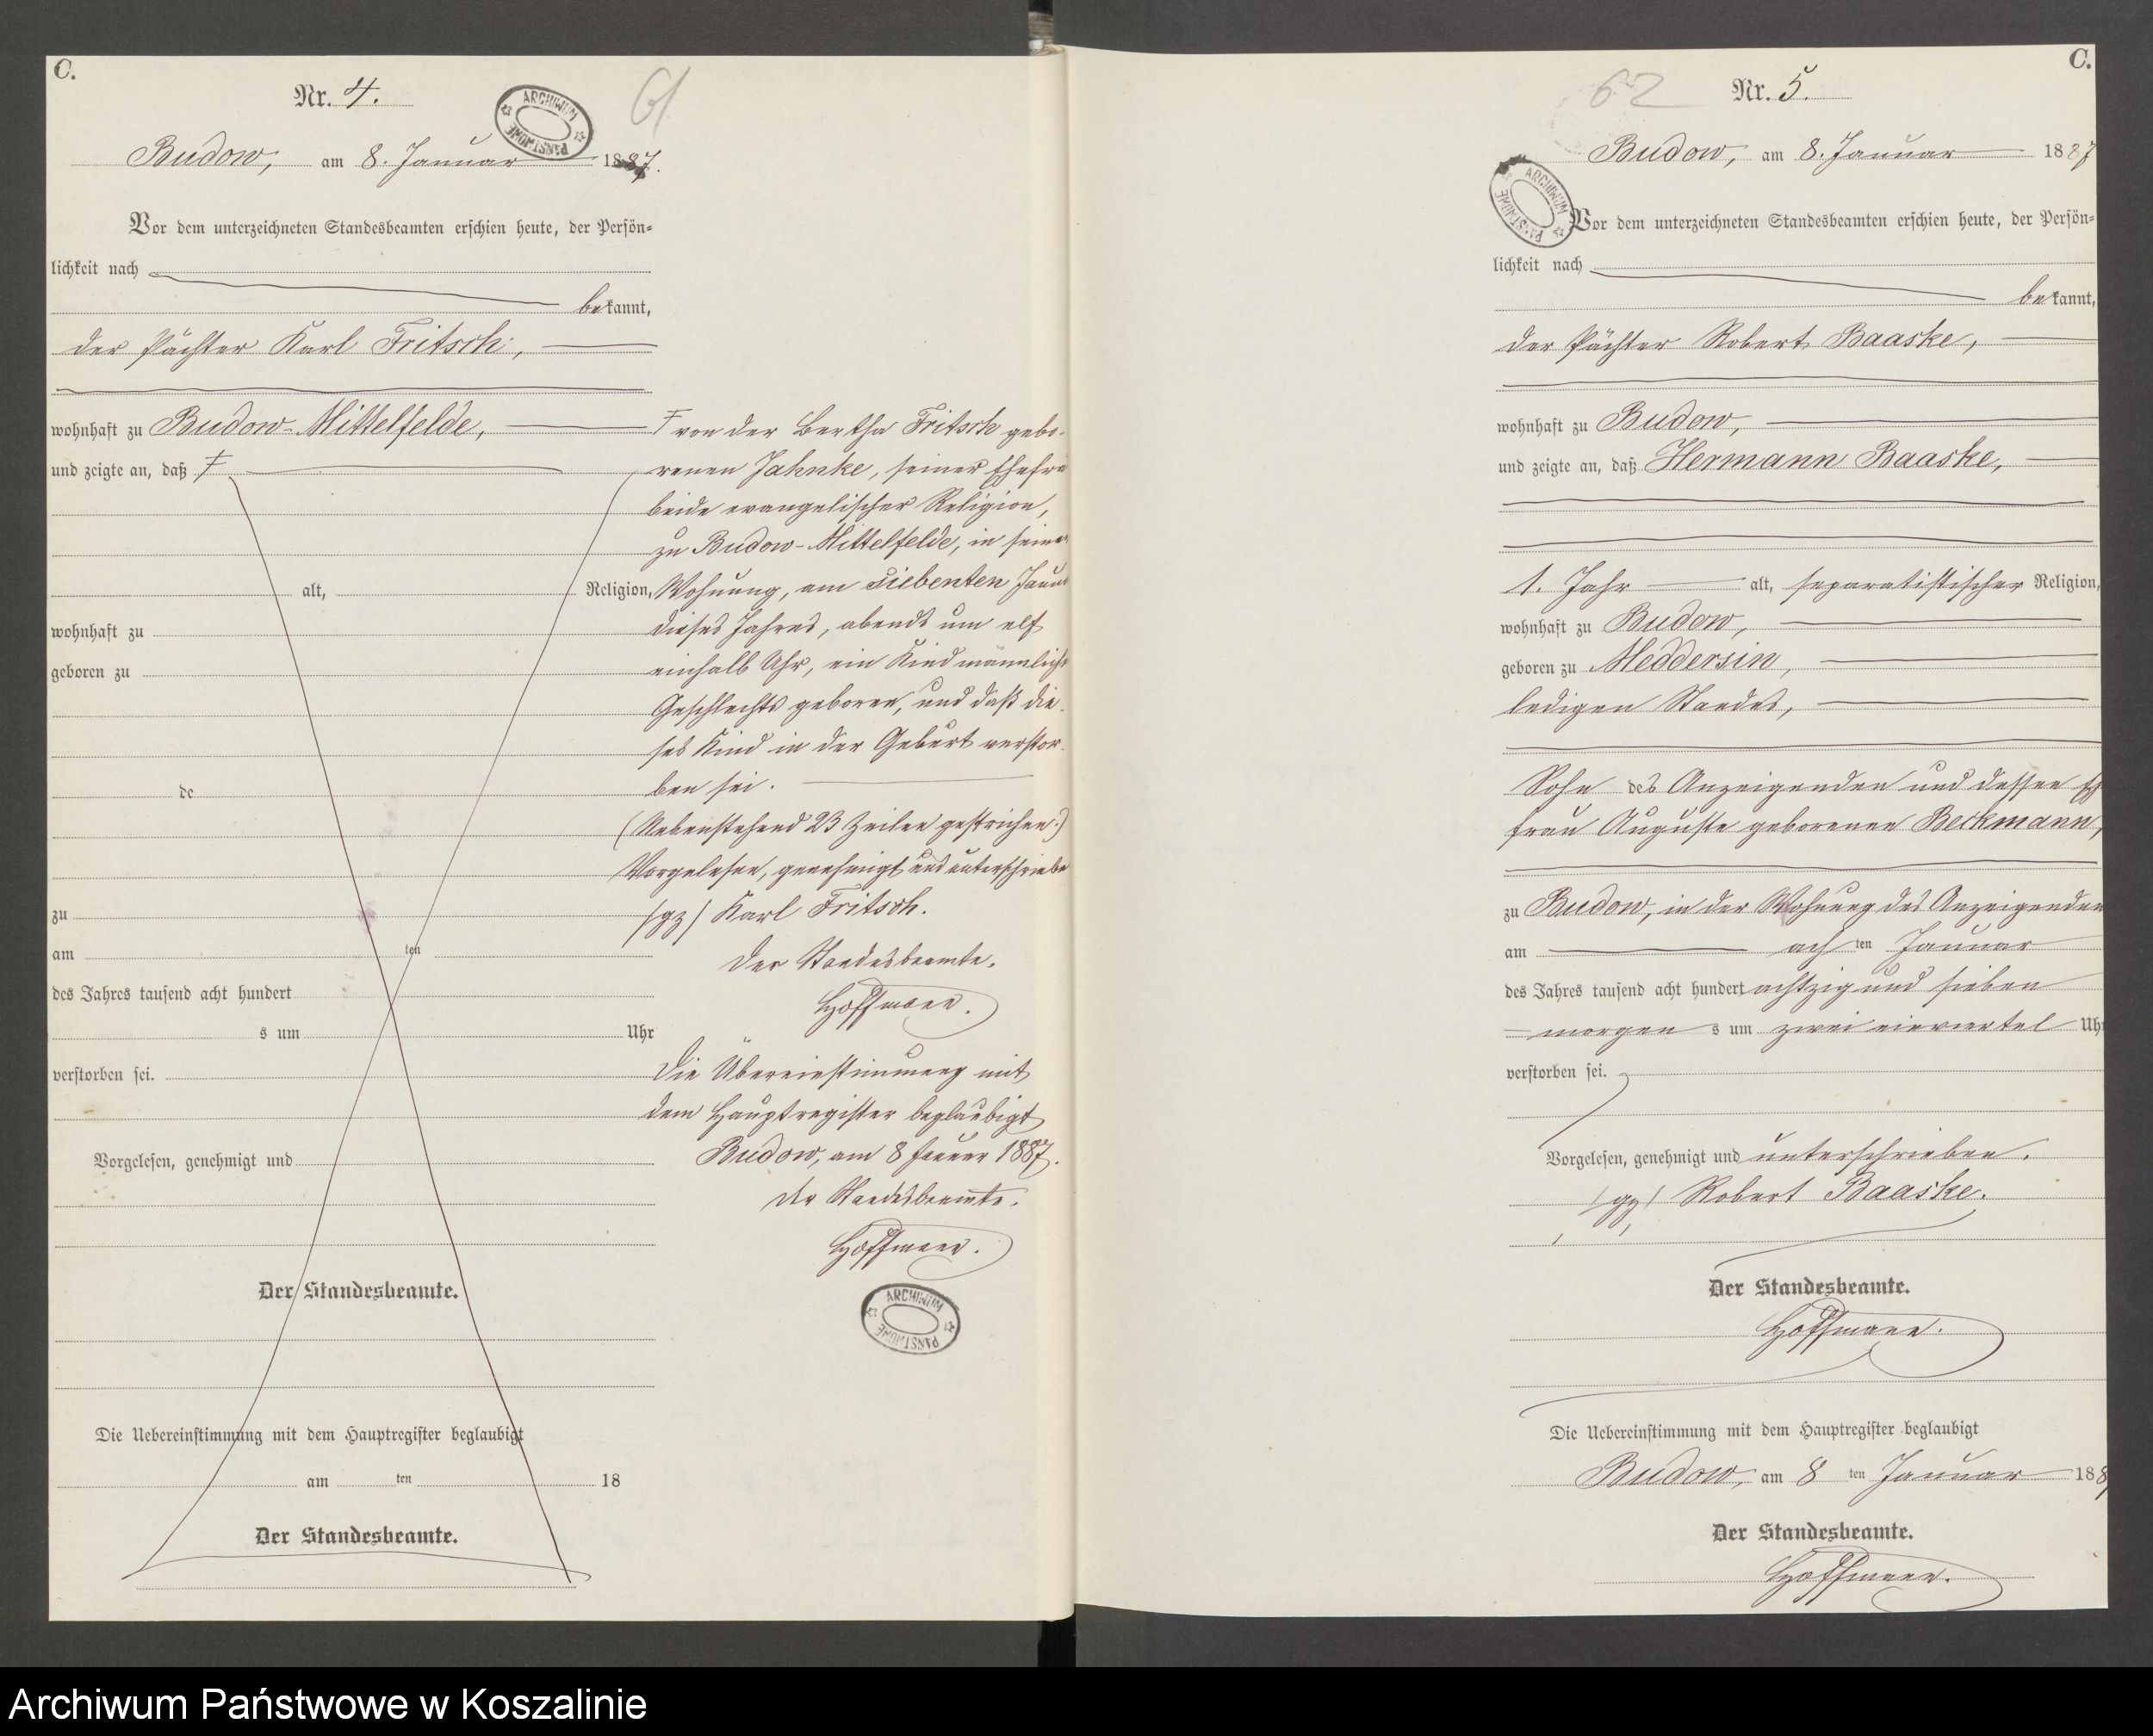 C.
Nr. 4.
61
ARCHIWUM PAŃSTWOWE
Budow, am 8. Januar 1887.
Vor dem unterzeichneten Standesbeamten erschien heute, der Persön=
lichkeit nach
bekannt,
der Pächter Karl Fritsch,
wohnhaft zu Budow-Mittelfelde,
und zeigte an, daß Ŧ
alt, Religion,
wohnhaft zu
geboren zu
de
zu
am ten
des Jahres tausend acht hundert
s um Uhr
verstorben sei.
Vorgelesen, genehmigt und
Der Standesbeamte.
Die Uebereinstimmung mit dem Hauptregister beglaubigt
am ten 18
Der Standesbeamte.
Ŧ von der Bertha Fritsch gebo-
renen Jahnke, seiner Ehefra
beide evangelischer Religion,
zu Budow-Mittelfelde, in seiner
Wohnung, am siebenten Janua
dieses Jahres, abends um elf
einhalb Uhr, ein Kind männlich
Geschlechts geboren, und daß die-
ses Kind in der Geburt verstor-
ben sei.
(Nebenstehend 23 Zeilen gestrichen.)
Vorgelesen, genehmigt und unterschriebe
/gz/ Karl Fritsch.
Der Standesbeamte.
Hoffmann.
Die Übereinstimmung mit
dem Hauptregister beglaubigt
Budow, am 8 Januar 1887.
Der Standesbeamte.
Hoffmann.
ARCHIWUM PAŃSTWOWE
C.
62
Nr. 5.
Budow, am 8. Januar 1887
ARCHIWUM PAŃSTWOWE
Vor dem unterzeichneten Standesbeamten erschien heute, der Persön=
lichkeit nach
bekannt,
der Pächter Robert Baaske,
wohnhaft zu Budow,
und zeigte an, daß Hermann Baaske,
1. Jahr alt, separatistischer Religion,
wohnhaft zu Budow,
geboren zu Meddersin,
ledigen Standes,
Sohn des Anzeigenden und dessen Eh
frau Auguste geborenen Beckmann,
zu Budow, in der Wohnung des Anzeigenden
am achten Januar
des Jahres tausend acht hundert achtzig und sieben
morgens um zwei einviertel Uhr
verstorben sei.
Vorgelesen, genehmigt und unterschrieben.
/gz/ Robert Baaske.
Der Standesbeamte.
Hoffmann.
Die Uebereinstimmung mit dem Hauptregister beglaubigt
Budow, am 8 ten Januar 188
Der Standesbeamte.
Hoffmann.
Archiwum Państwowe w Koszalinie